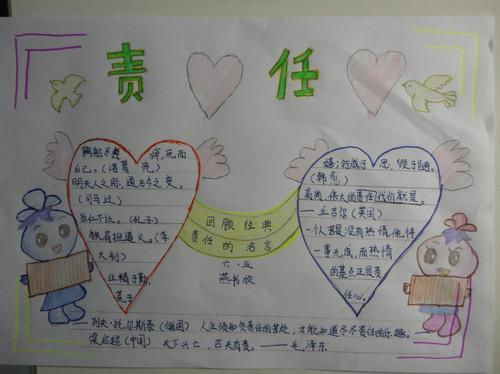 责任
鞠躬尽瘁,死而
后已。(诸葛亮)
明天人之际,通古今之变。
(司马迁)
当仁不让。(孔子)
铁肩担道义。(李
大钊)
业精于勤,
荒于
嬉;行成于思,毁于随。
(韩愈)
高尚、伟大的责任代价就是
——丘吉尔(英国)
一个人若是没有热情,他将
一事无成,而热情
的基点正是责
任心。
回顾经典
责任的名言
六·五
燕书欣
——列夫·托尔斯泰(俄国) 人生须知负责任的苦处,才能知道尽责任的乐趣。
——梁启超(中国) 天下兴亡,匹夫有责。——毛泽东